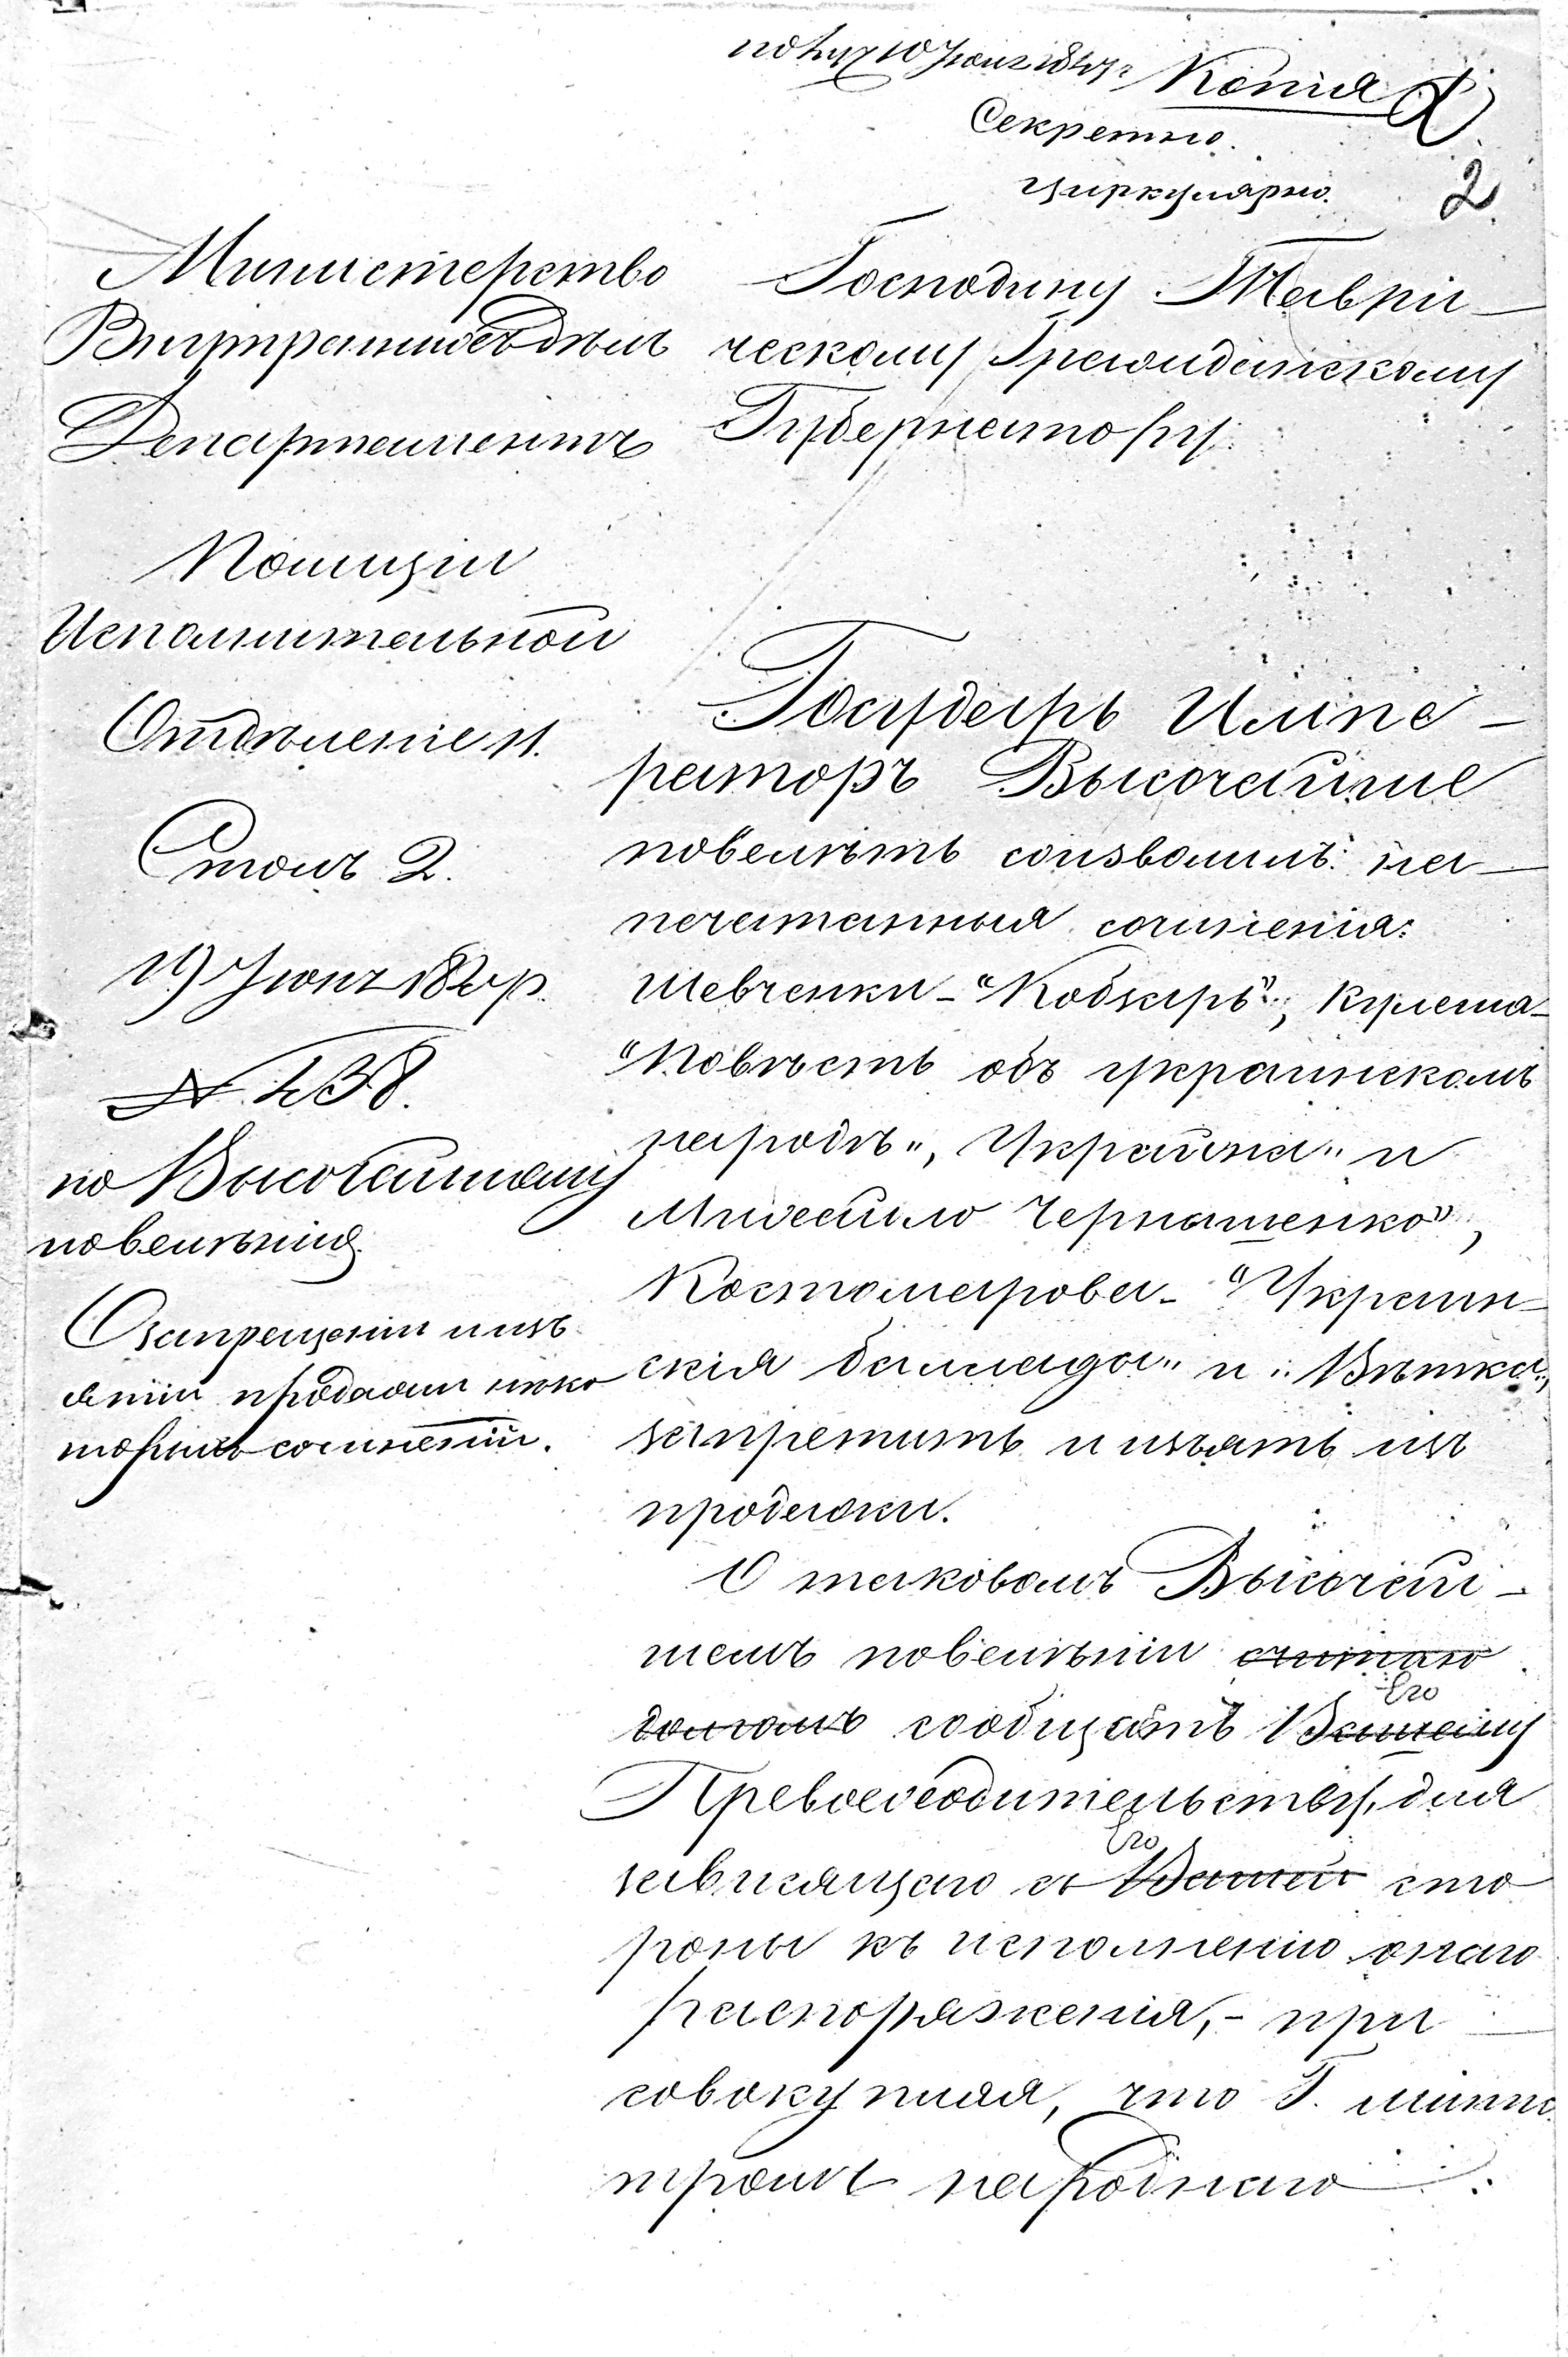 Копія
Секретно.
Циркулярно.
2
Министерство
Внутреннихъ дѣлъ
Департаментъ
Полиціи
Исполнительной
Отдѣленіе
Столъ 2.
№ 138.
по Высочайшему
повелѣнію
О запрещеніи и изъ
ятіи продажи нѣко
торыхъ сочиненій.
Господину Таври—
ческому Гражданскому
Губернатору.
Государь Импе—
раторъ Высочайше
повелѣть соизволилъ: на—
печатанныя сочиненія:
Шевченки - "Кобзарь", Кулеша -
"Повѣсть объ украинскомъ
народѣ", Украйна" и
Михайло Чернышенко",
Костомарова - "Украин—
скія баллады" и "Вѣтка",
запретить и изъять изъ
продажи.
О таковомъ Высочай—
шемъ повелѣніи считаю
долгомъ сообщать Вашему
Его
Превосходительству, для
Его
зависящаго съ Вашей сто
роны къ исполненію онаго
распоряженія, - при
совокупляя, что Г. минис
тромъ народнаго